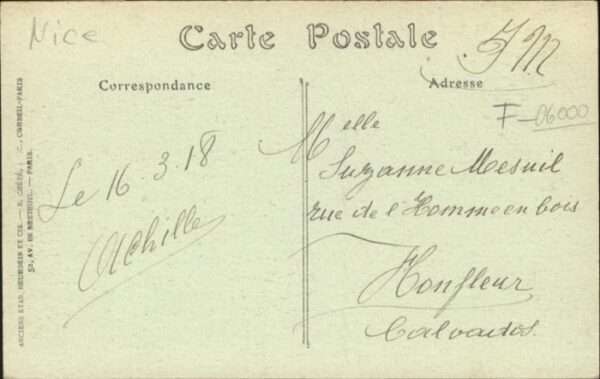 Nice
Carte Postale
F.M
Correspondance
Adresse
F-06000
Melle
Suzanne Mesnil
rue de l'Homme en bois
Honfleur
Calvados
Le 16.3.18
Achille
ANCIENS ETAB. NEURDEIN ET CIE. — E. CRÉTÉ, CORBEIL-PARIS
52, AV. DE BRETEUIL. — PARIS.